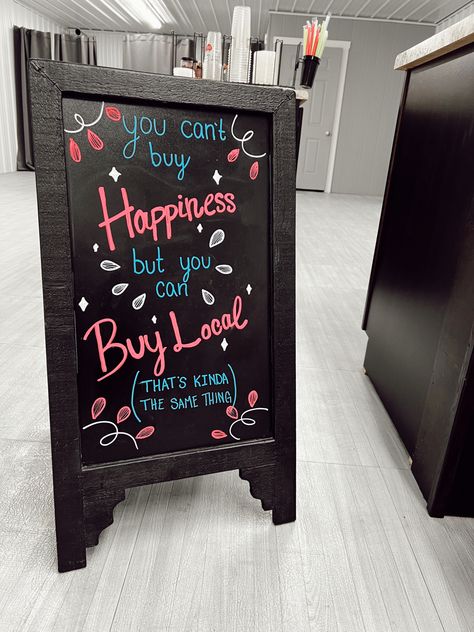 you can't
buy
Happiness
but you
can
Buy Local
(THAT'S KINDA
THE SAME THING)